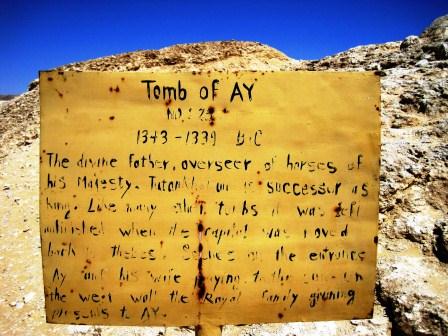 Tomb of AY
NO. 25
1343-1339 B.C
The divine father, overseer of horses of
his Majesty. is successor as
king. Like many tombs it was left
when the capital was moved
back to Thebes. on the entrance
Ay and his wife praying to the
the west wall the Royal family
presents to AY.